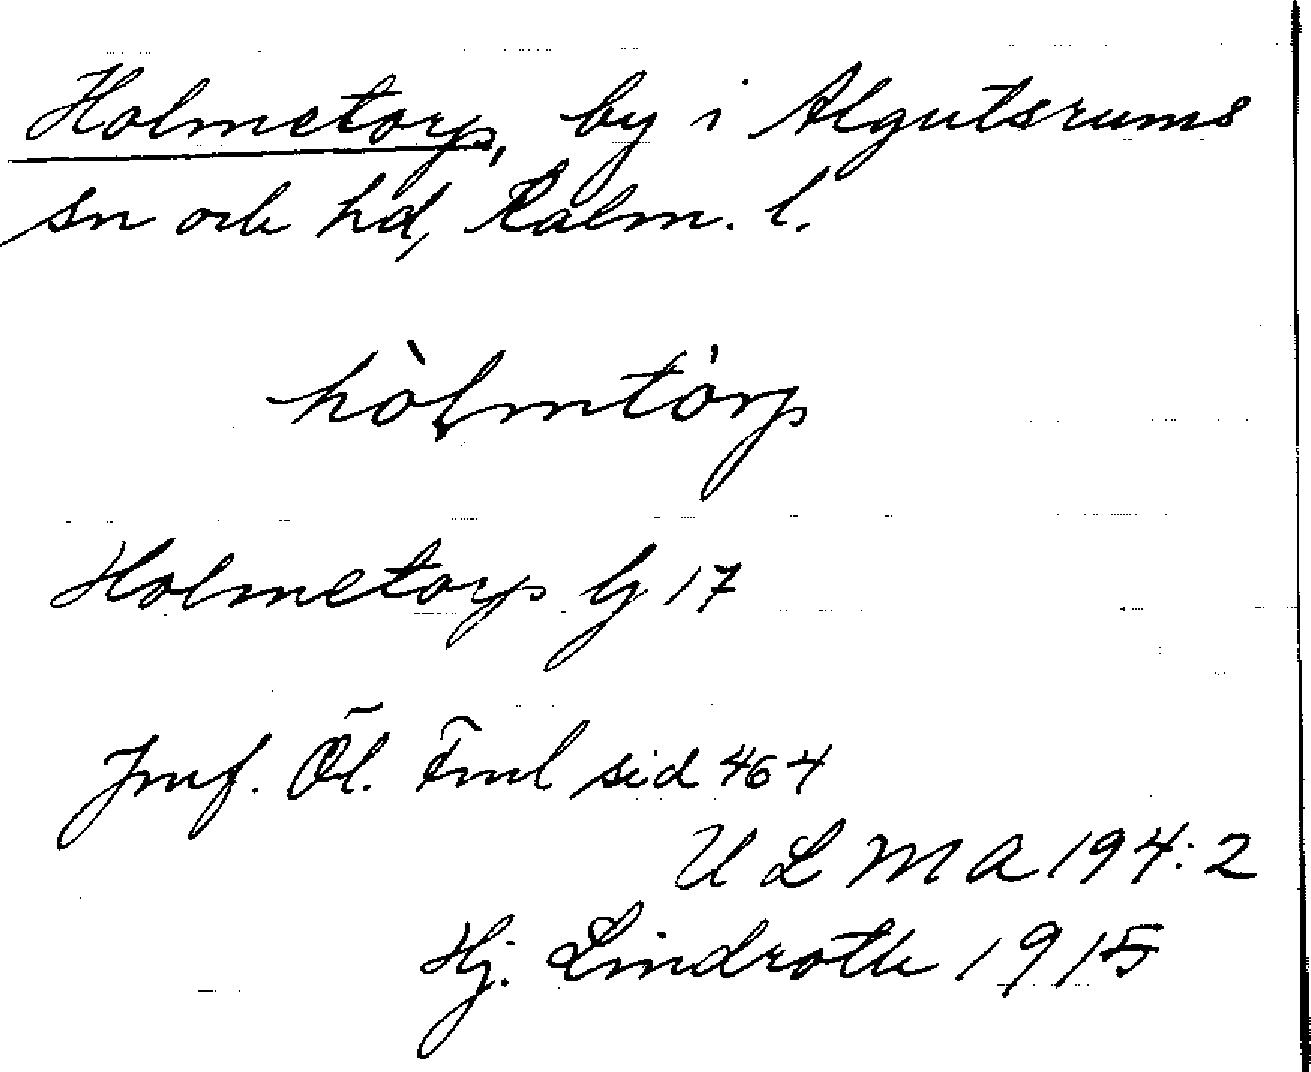 Holmetorp, by i Algutsrums
sn och hd, Kalm. l.
hòlmtórp
Holmetorp G 17
Jmf. Öl. Fml sid 464
U L M A 194:2
Hj. Lindroth 1915